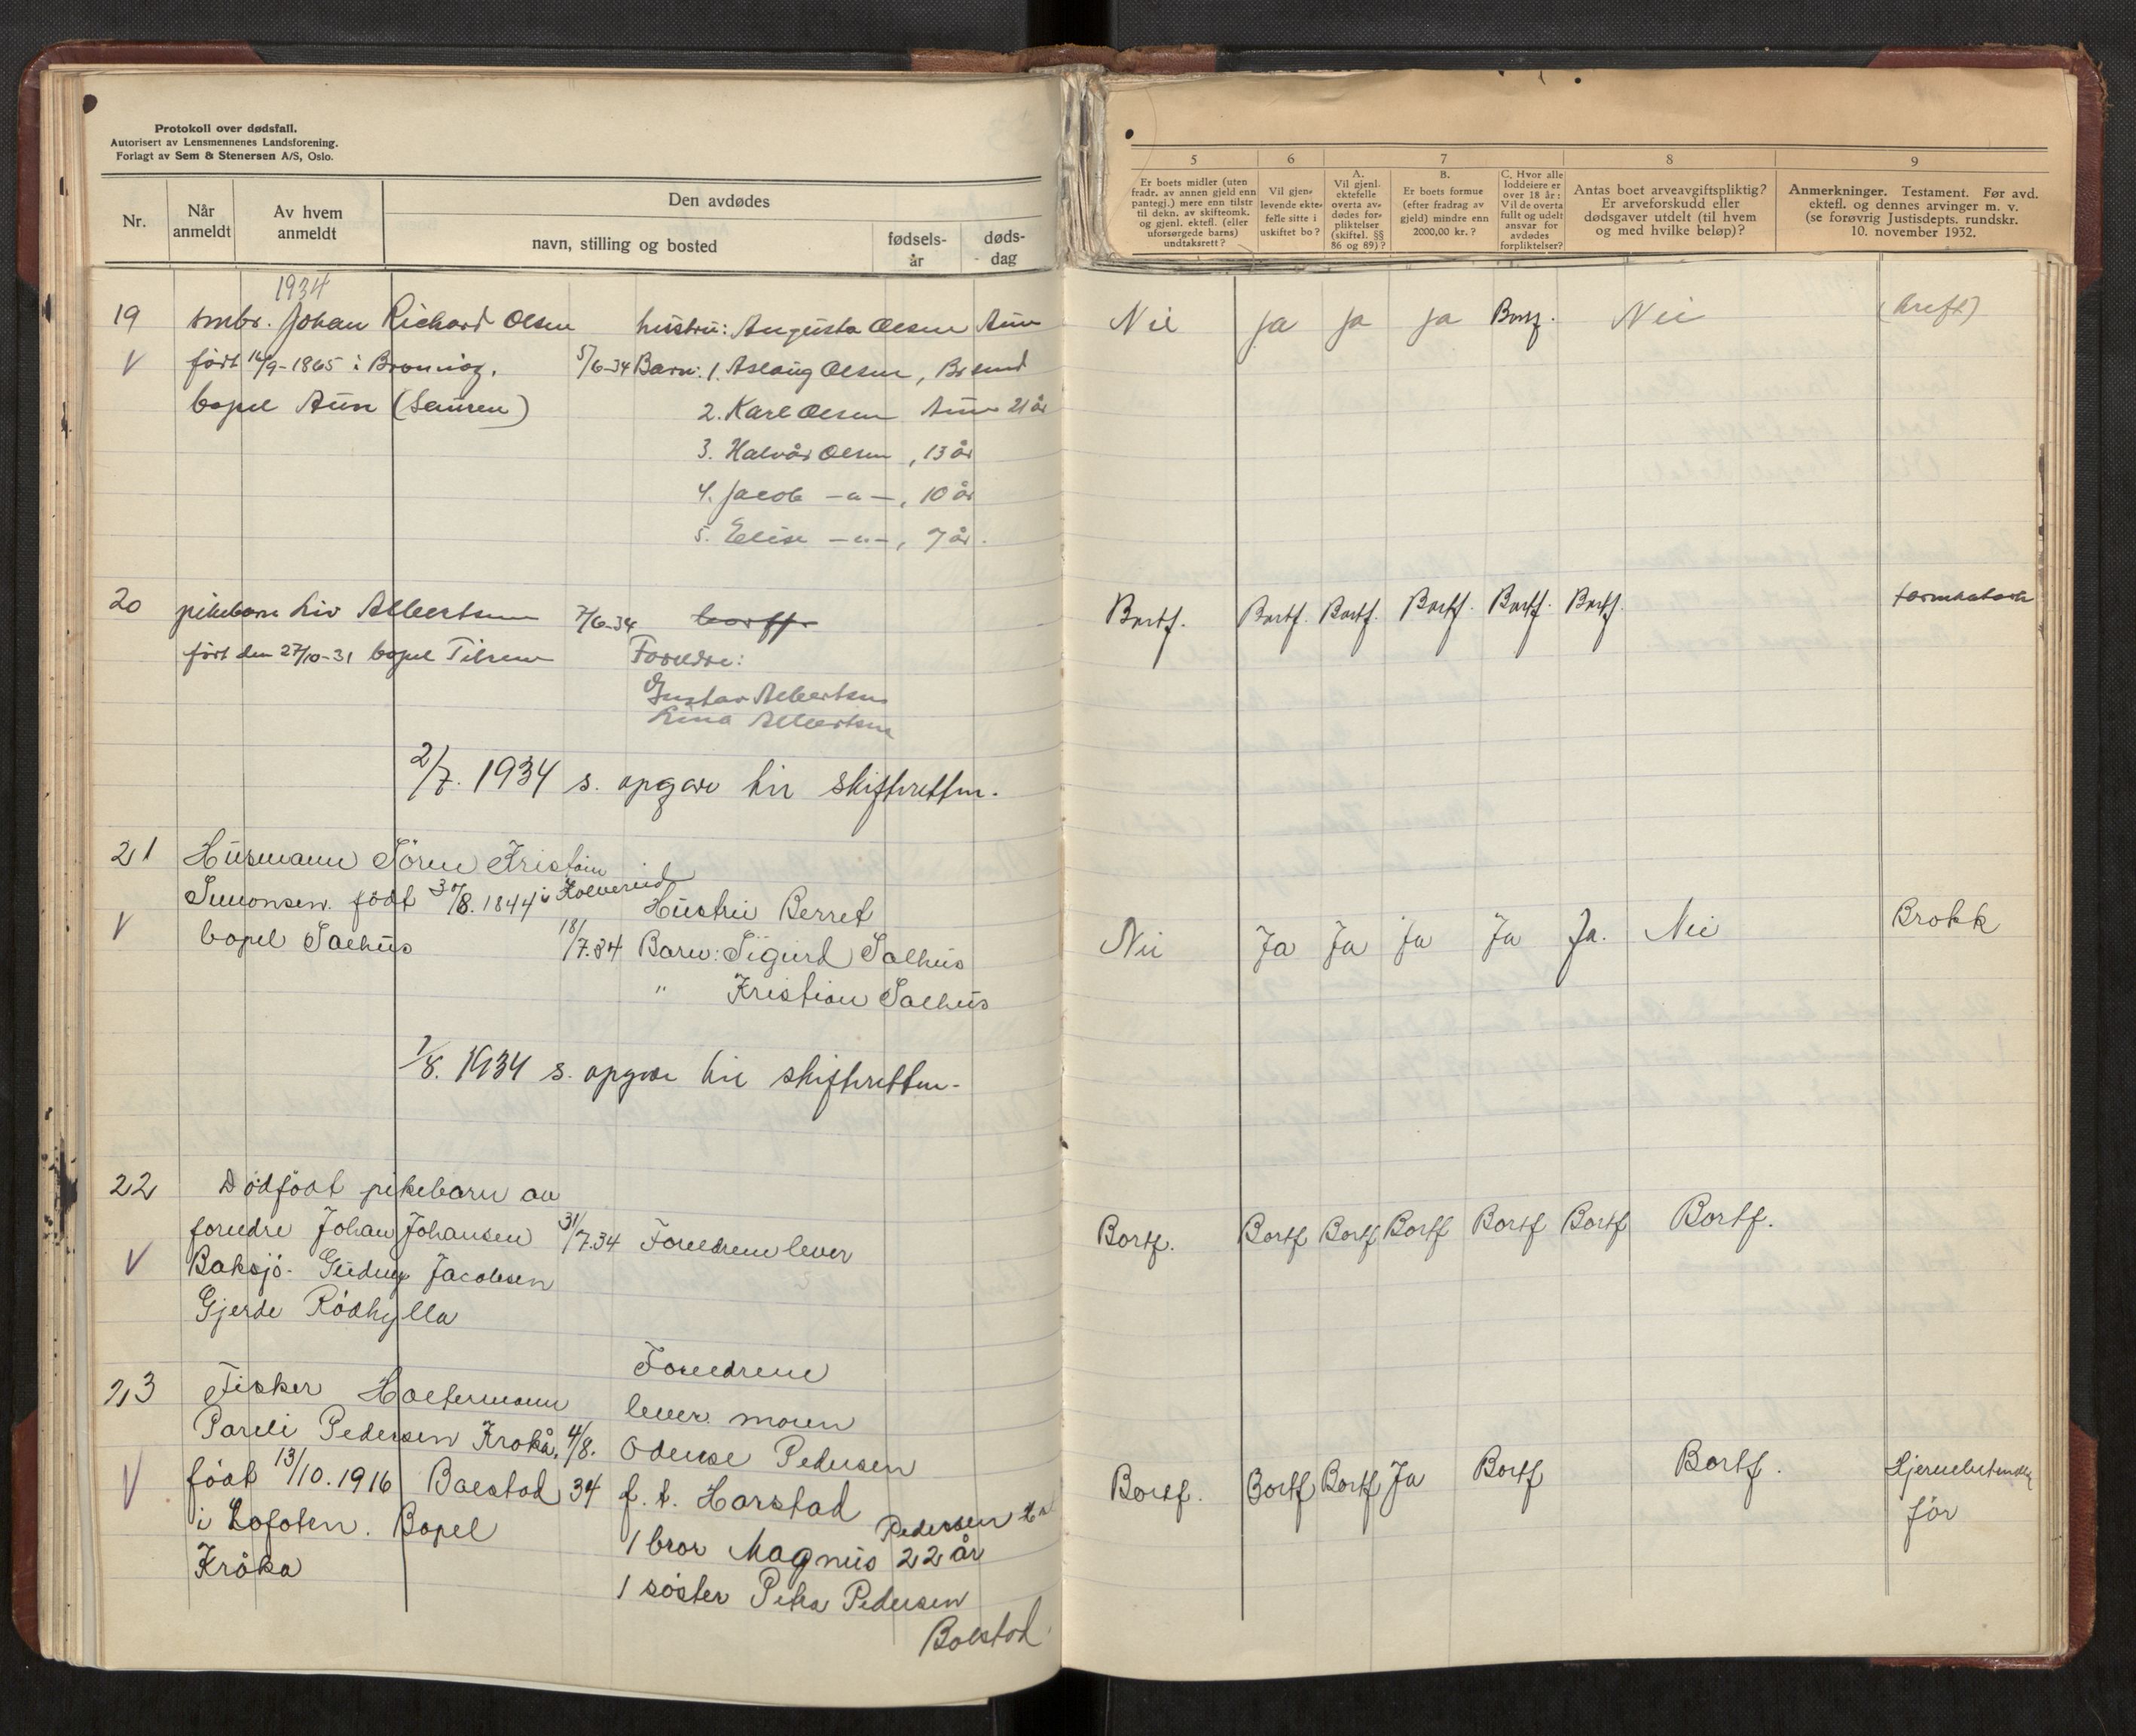 Protokoll over dødsfall.
Autorisert av Lensmennenes Landsforening.
Forlagt av Sem & Stenersen A/S, Oslo.
Nr.
Når anmeldt
Av hvem anmeldt
Den avdødes
navn, stilling og bosted
fødsels-år
døds-dag
5
6
7
8
9
Er boets midler (uten
fradr. av annen gjeld enn
pantegj.) mere enn tilstr
til dekn. av skifteomk.
og gjenl. ektefl. (eller
uforsørgede barns)
undtaksrett?
Vil gjen-
levende ekte-
felle sitte i
uskiftet bo?
A.
Vil gjenl.
ektefelle
overta av-
dødes for-
pliktelser
(skiftel. §§
86 og 89)?
B.
Er boets formue
(efter fradrag av
gjeld) mindre enn
2000,00 kr.?
C. Hvor alle
loddeiere er
over 18 år:
Vil de overta
fullt og udelt
ansvar for
avdødes
forpliktelser?
Antas boet arveavgiftspliktig?
Er arveforskudd eller
dødsgaver utdelt (til hvem
og med hvilke beløp)?
Anmerkninger. Testament. Før avd.
ektefl. og dennes arvinger m. v.
(se forøvrig Justisdepts. rundskr.
10. november 1932.
1934
19 smbr. Johan Richard Olsen hustru: Augusta Olsen Aun Nei Ja Ja Ja Bortf. Nei (kreft)
V født 16/9-1865 i Brønnøy. 5/6-34 Barn: 1. Aslaug Olsen, Br.sund
bopel Aun 2. Karl Olsen Aun 21 år
3. Halvår Olsen, 13 år
4. Jacob -"-, 10 år
5. Elise -"-, 7 år.
20 pikebarn Liv Albertsen 7/6-34 Bortf. Bortf. Bortf. Bortf. Bortf. Bortf.
født den 27/10-31 bopel Tilrem Foreldre:
Gustav Albertsen
Lina Albertsen
2/7. 1934 s. opgave til skifteretten.
21 Husmann Sören Kristian
Simonsen. födt 30/8. 1844 i Kolvereid Hustru Berret
V bopel Salhus 18/7.34 Barn: Sigurd Salhus Nei Ja Ja Ja Ja Ja. Nei Brokk
" Kristian Salhus
1/8. 1934 s. opgave til skifteretten.
22 Dödfödt pikebarn av
foreldre Johan Johansen 31/7.34 Foreldrene lever Bortf. Bortf Bortf Bortf Bortf Bortf Bortf.
V Baksjö. Jacobsen
Gjerde Rödhylla
23 Fisker Holtermann Foreldrene
Pareli Pedersen Kroka, 4/8. lever. moren
V födt 13/10.1916 Bolstad 34 Odense Pedersen Bortf. Bortf Bortf Ja Bortf Bortf.
i Lofoten. Bopel f. t. Harstad för
Kråka 1 bror Magnus Pedersen 22 år
1 söster Petra Pedersen
Bolstad